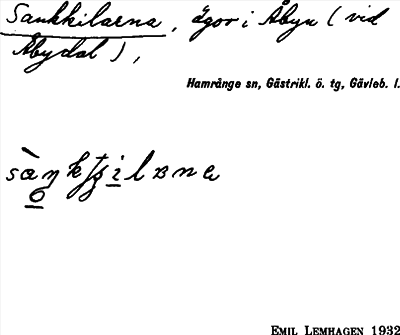 Sankkilarna, ägor i Åbyn (vid
Åbydal),
Hamrånge sn, Gästrikl. ö. tg, Gävleb. l.
EMIL LEMHAGEN 1932